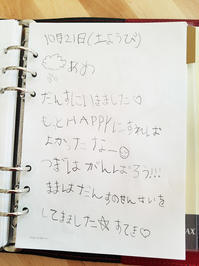 10月21日(土ようび)
あわ
だんすにいきました♡
もっとHAPPYにすれば
よかったなー☺
つぎはがんばろう!!!
ままはだんすのせんせいを
してました☆すてき♡
AX